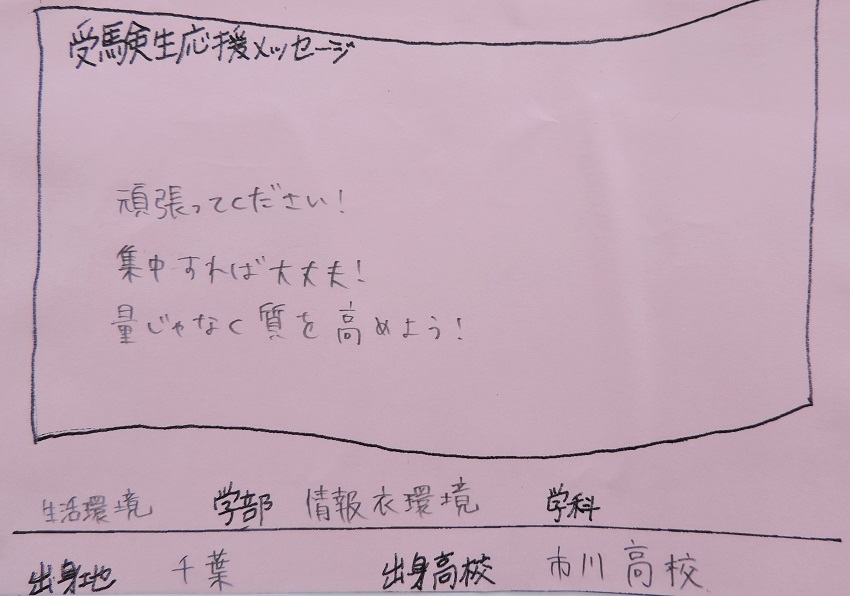 受験生応援メッセージ
頑張ってください!
集中すれば大丈夫!
量じゃなく質を高めよう!
生活環境 学部 情報衣環境 学科
出身地 千葉 出身高校 市川高校